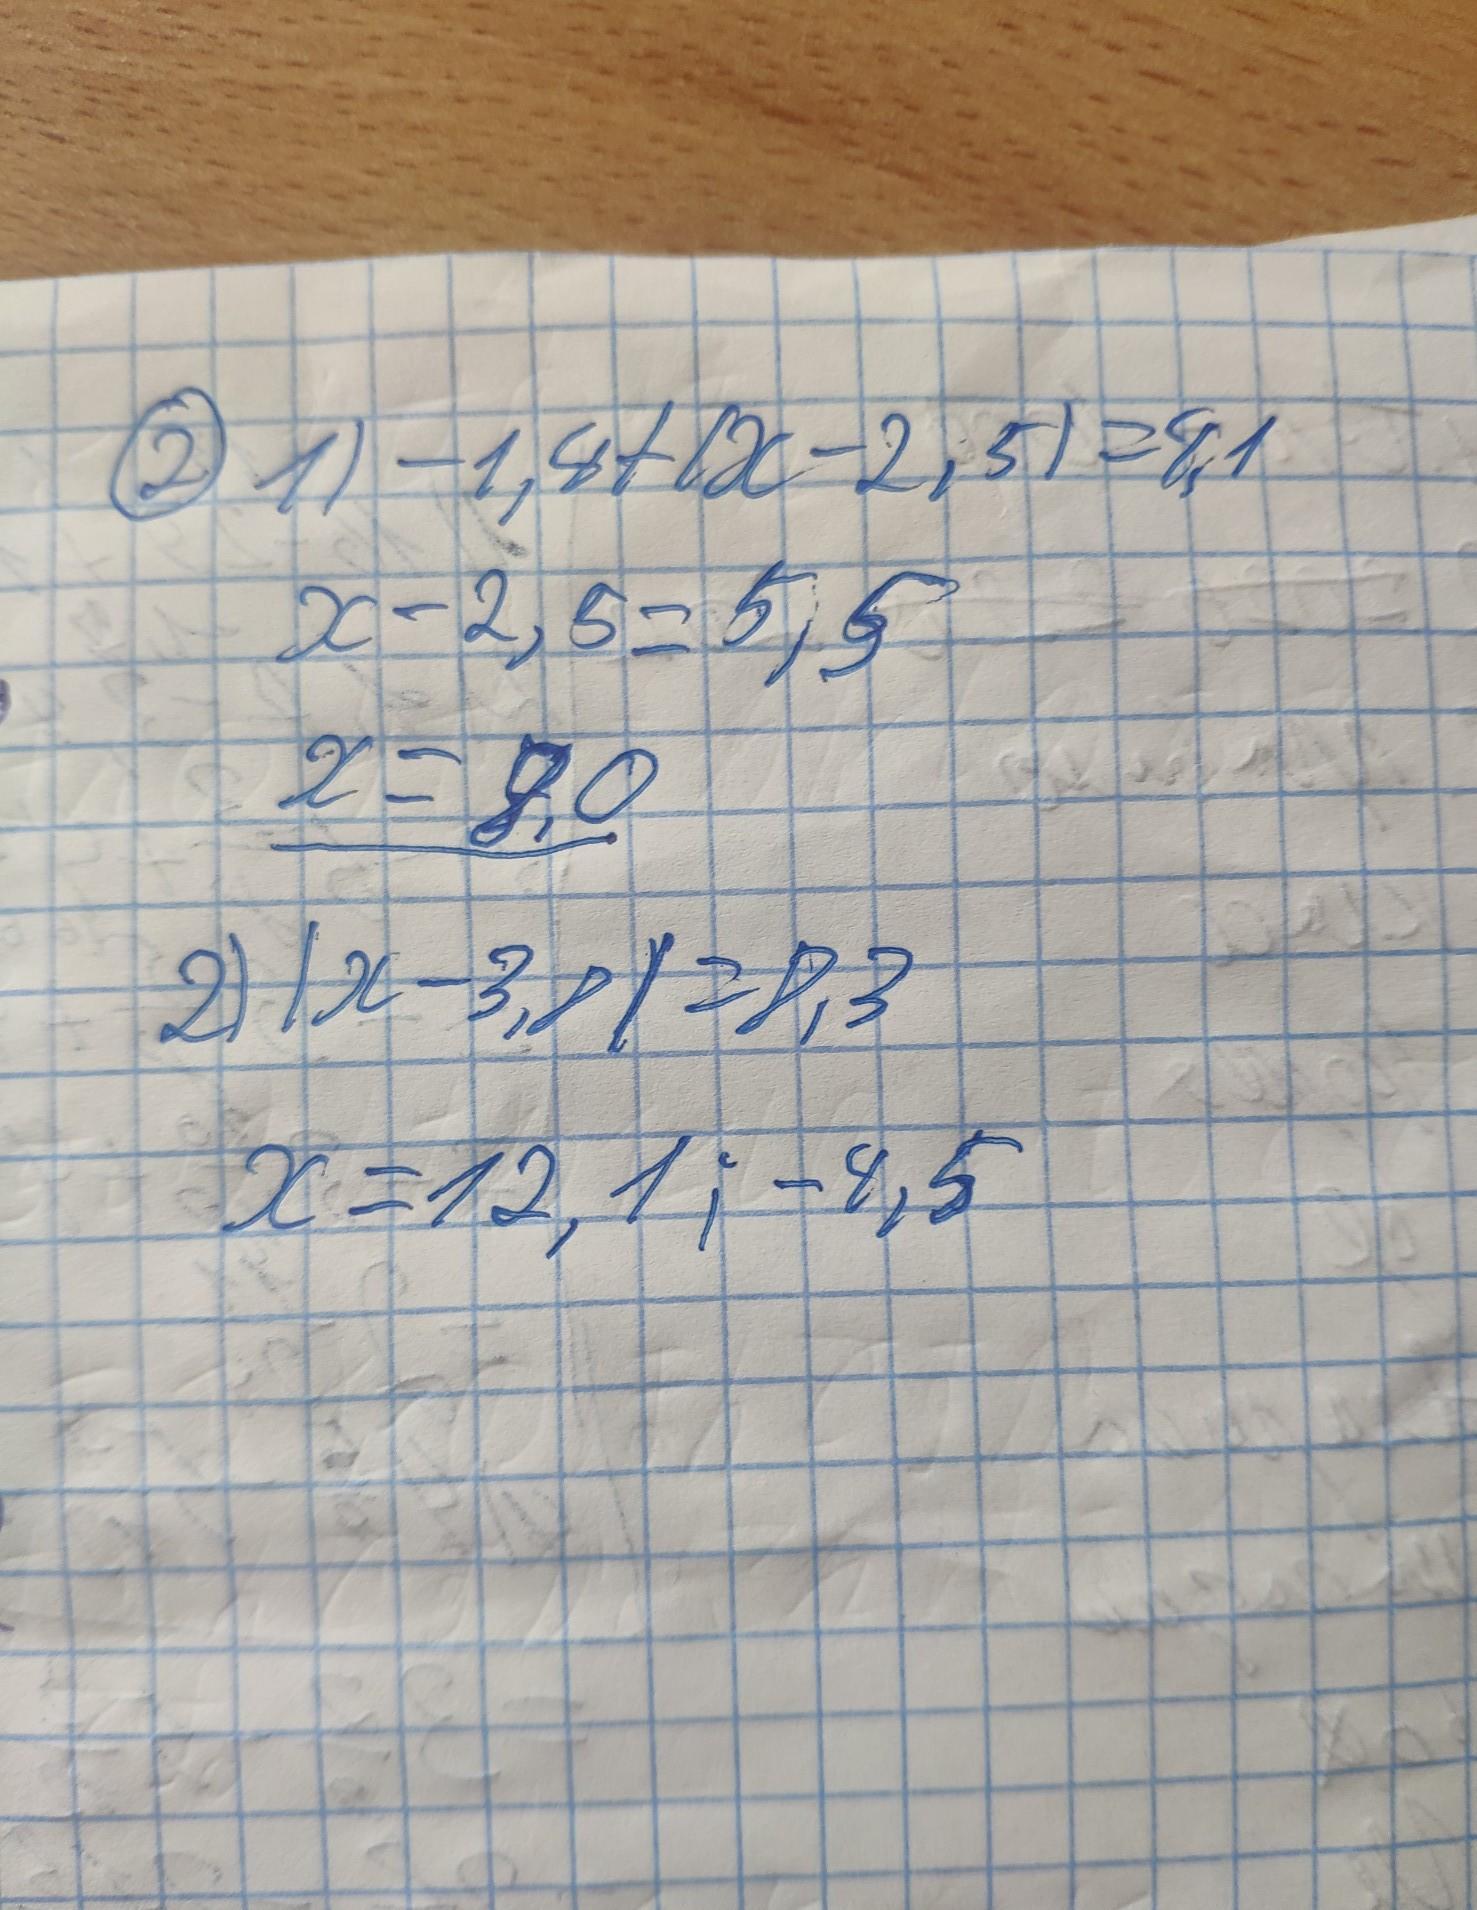 ② 1) -1,4+|x-2,5|=4,1
x-2,5=5,5
x=8,0
2) |x-3,8|=8,3
x=12,1; -4,5